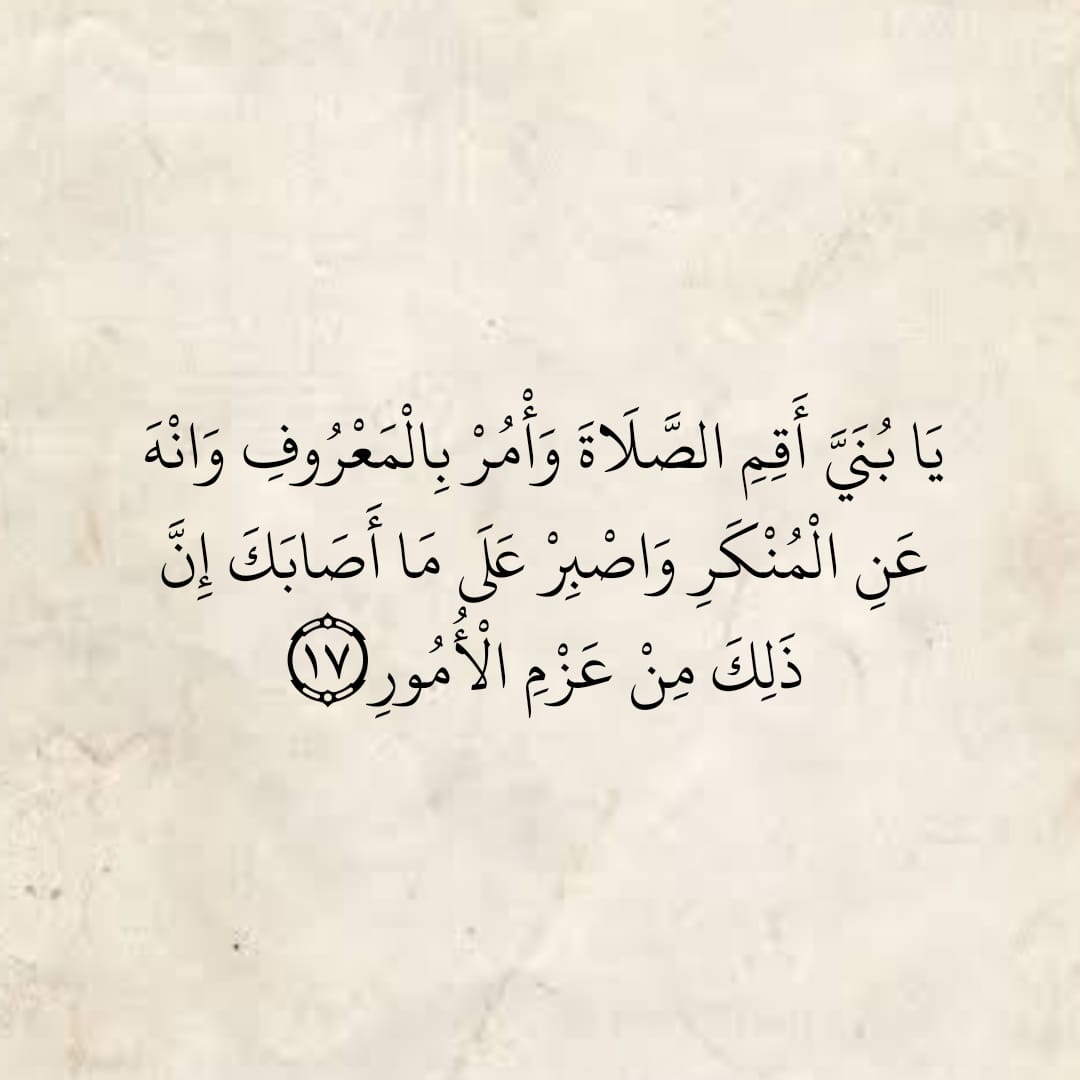 يَا بُنَيَّ أَقِمِ الصَّلَاةَ وَأْمُرْ بِالْمَعْرُوفِ وَانْهَ
عَنِ الْمُنْكَرِ وَاصْبِرْ عَلَى مَا أَصَابَكَ إِنَّ
ذَلِكَ مِنْ عَزْمِ الْأُمُورِ ١٧